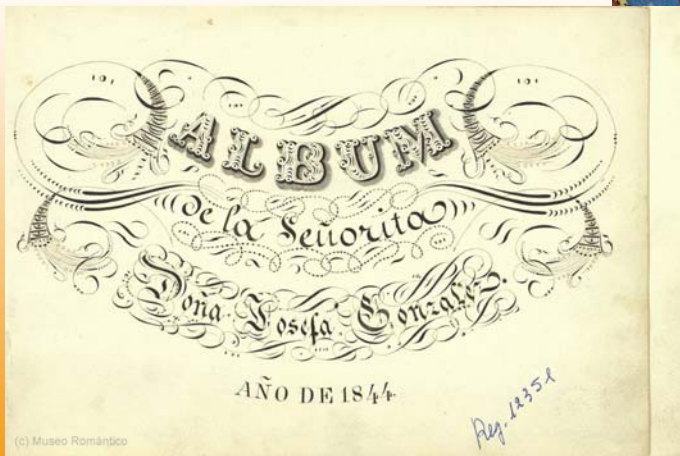 ALBUM
de la Señorita
Doña Josefa Gonzalez.
AÑO DE 1844
Reg. 12351
(c) Museo Romántico